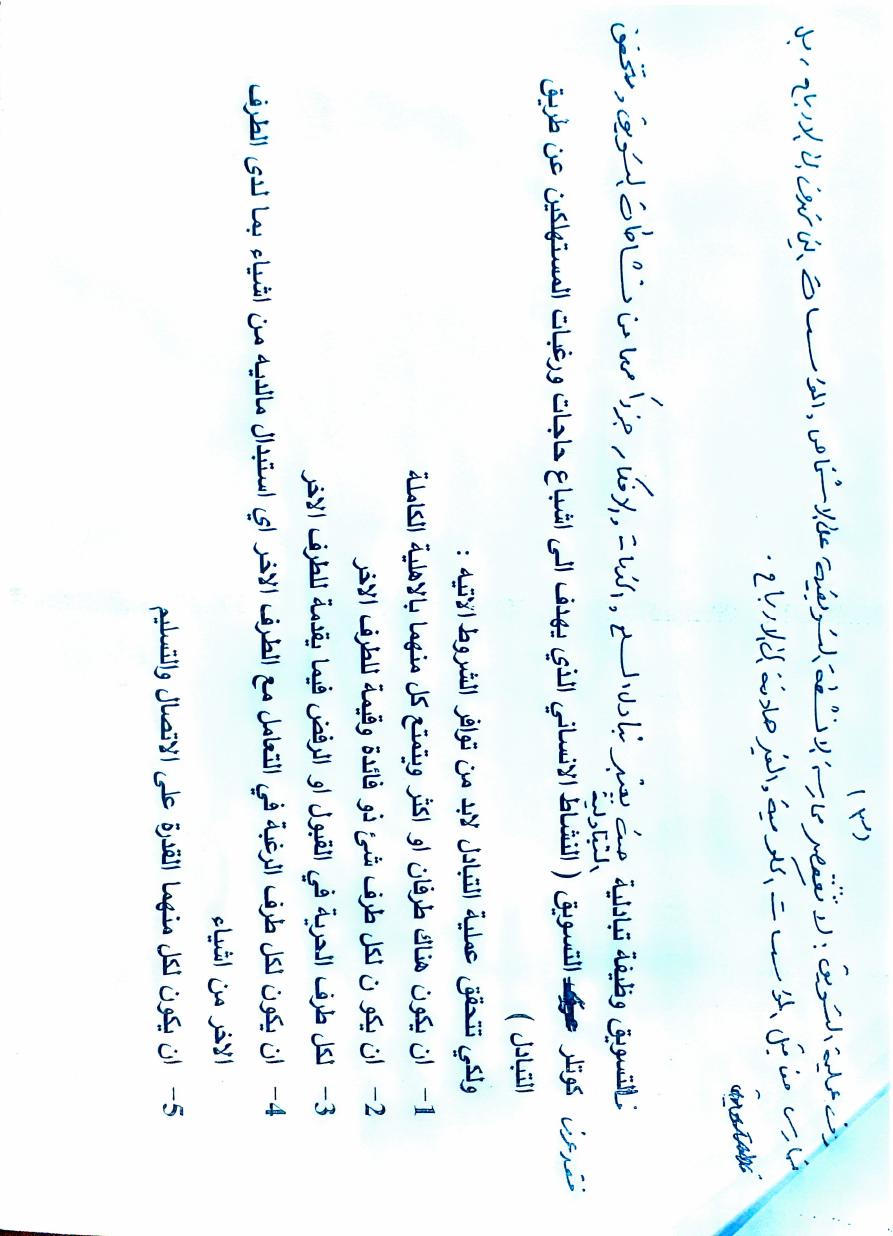 (٣)
في عملية التسويق: لا تقتصر ممارسة الانشطة التسويقية على الاشخاص والمؤسسات التي تهدف الى الارباح، بل
تمارس من قبل المؤسسات الحكومية والغير هادفة الى الارباح.
فالتسويق وظيفة تبادلية حيث يعتبر تبادل السلع والخدمات والافكار جزءاً مهما من نشاطات التسويق،
التبادلية
فقد عرف كوتلر التسويق ( النشاط الانساني الذي يهدف الى اشباع حاجات ورغبات المستهلكين عن طريق
التبادل )
ولكي تتحقق عملية التبادل لابد من توافر الشروط الاتيه :
1- ان يكون هناك طرفان او اكثر ويتمتع كل منهما بالاهلية الكاملة
2- ان يكو ن لكل طرف شئ ذو فائدة وقيمة للطرف الاخر
3- لكل طرف الحرية في القبول او الرفض فيما يقدمة للطرف الاخر
4- ان يكون لكل طرف الرغبة في التعامل مع الطرف الاخر اي استبدال مالديه من اشياء بما لدى الطرف
الاخر من اشياء
5- ان يكون لكل منهما القدرة على الاتصال والتسليم